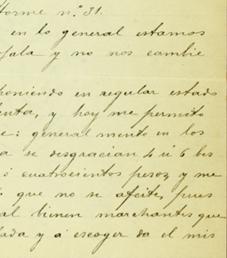 forme n.º 31.
en lo general estamos
jala y no nos cambie
poniendo en regular estado
enta, y hoy me permito
e: general mente en los
a se desgracian 4 ú 6 bs
ó cuatrocientos pesos y me
que no se afeite, pues
al bienen marchantes que
lada y á escoger da el mis